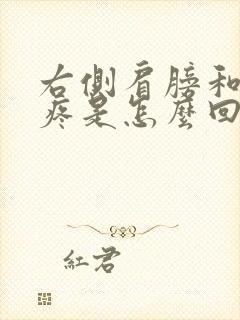 右側肩膀和
疼是怎麼回
紅君